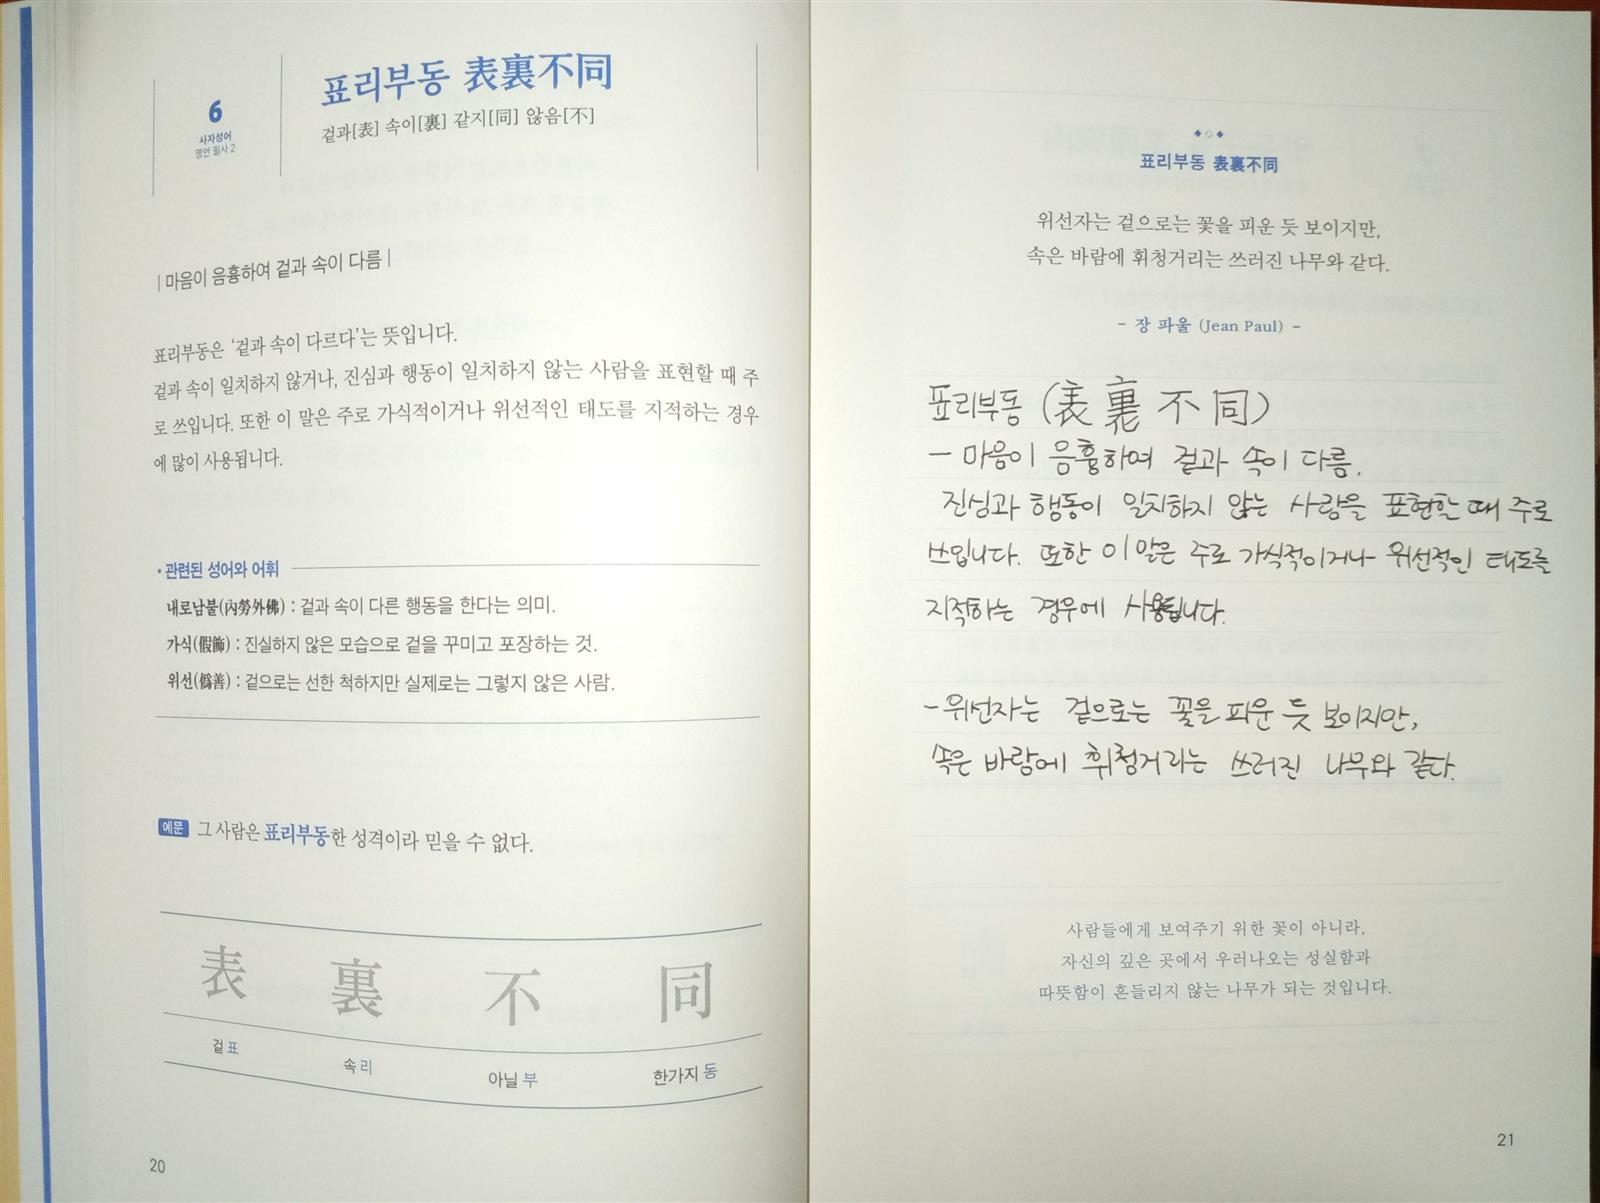 6
사자성어
명언 필사 2
표리부동 表裏不同
겉과[表] 속이[裏] 같지[同] 않음[不]
| 마음이 음흉하여 겉과 속이 다름 |
표리부동은 ‘겉과 속이 다르다’는 뜻입니다.
겉과 속이 일치하지 않거나, 진심과 행동이 일치하지 않는 사람을 표현할 때 주
로 쓰입니다. 또한 이 말은 주로 가식적이거나 위선적인 태도를 지적하는 경우
에 많이 사용됩니다.
• 관련된 성어와 어휘
내로남불(內勞外佛) : 겉과 속이 다른 행동을 한다는 의미.
가식(假飾) : 진실하지 않은 모습으로 겉을 꾸미고 포장하는 것.
위선(僞善) : 겉으로는 선한 척하지만 실제로는 그렇지 않은 사람.
예문 그 사람은 표리부동한 성격이라 믿을 수 없다.
表 裏 不 同
겉 표 속 리 아닐 부 한가지 동
20
표리부동 表裏不同
위선자는 겉으로는 꽃을 피운 듯 보이지만,
속은 바람에 휘청거리는 쓰러진 나무와 같다.
- 장 파울 (Jean Paul) -
표리부동 (表 裏 不 同)
- 마음이 음흉하여 겉과 속이 다름.
진심과 행동이 일치하지 않는 사람을 표현할 때 주로
쓰입니다. 또한 이 말은 주로 가식적이거나 위선적인 태도를
지적하는 경우에 사용됩니다.
- 위선자는 겉으로는 꽃을 피운 듯 보이지만,
속은 바람에 휘청거리는 쓰러진 나무와 같다.
사람들에게 보여주기 위한 꽃이 아니라,
자신의 깊은 곳에서 우러나오는 성실함과
따뜻함이 흔들리지 않는 나무가 되는 것입니다.
21